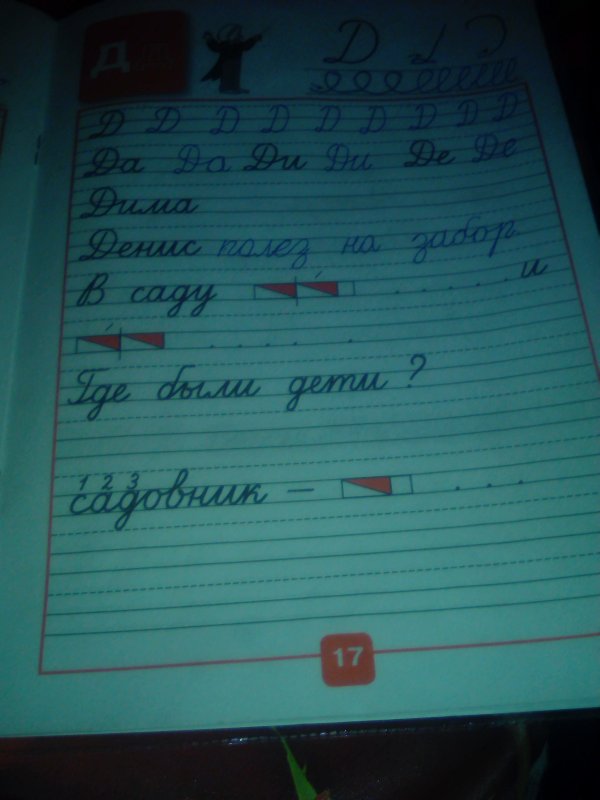 Д д
Д
Д Д Д Д Д Д Д Д Д
Да Да Ди Ди Де Де
Дима
Денис полез на забор
В саду . . . . . . и
. . . . .
Где были дети ?
1 2 3
садовник – . . .
17